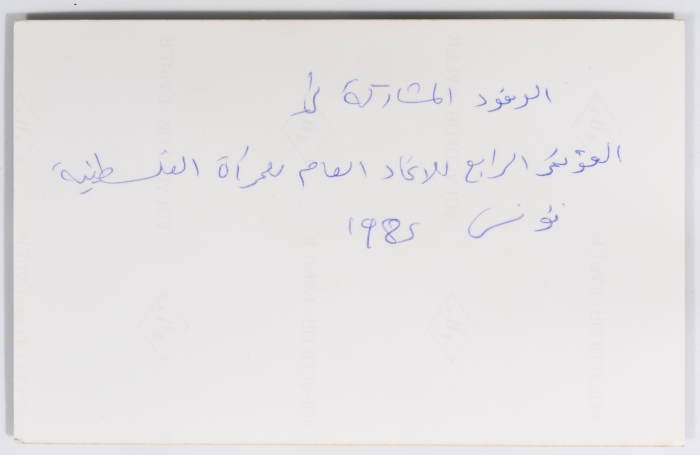 الوفود المشاركة في
المؤتمر الرابع للاتحاد العام للمرأة الفلسطينية
تونس 1985